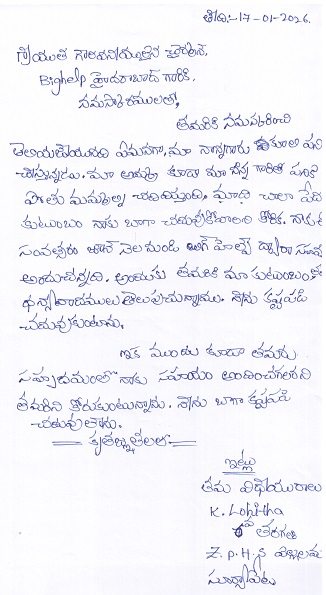 తేది:- 17-01-2026.
శ్రీయుత గౌరవనీయులైన
Bighelp హైదరాబాద్ గారికి,
నమస్కారములతో,
తమరికి నమస్కరించి
తెలియజేయునది ఏమనగా, మా నాన్నగారు కూలి పని
చేస్తున్నారు. మా అమ్మ కూడా మా నాన్న గారితో పనికి
పోతు మమ్మల్ని చదివిస్తుంది. మాది చాలా పేద
కుటుంబం నాకు బాగా చదువుకోవాలని కోరిక. నాకు
సంవత్సరం జూన్ నెల నుండి బిగ్ హెల్ప్ ద్వారా
అందుచున్నది. అందుకు తమరికి మా కుటుంబం
ధన్యవాదములు తెలుపుచున్నాము. నేను కష్టపడి
చదువుకుంటాను.
ఇక ముందు కూడా తమరు
సహృదయంతో నాకు సహాయం అందించగలరని
తమరిని కోరుకుంటున్నాను. నేను బాగా కష్టపడి
చదువుతాను.
కృతజ్ఞతలతో
ఇట్లు
తమ విధేయురాలు
K. Lohitha
తరగతి
Z.P.H.S
సూర్యాపేట